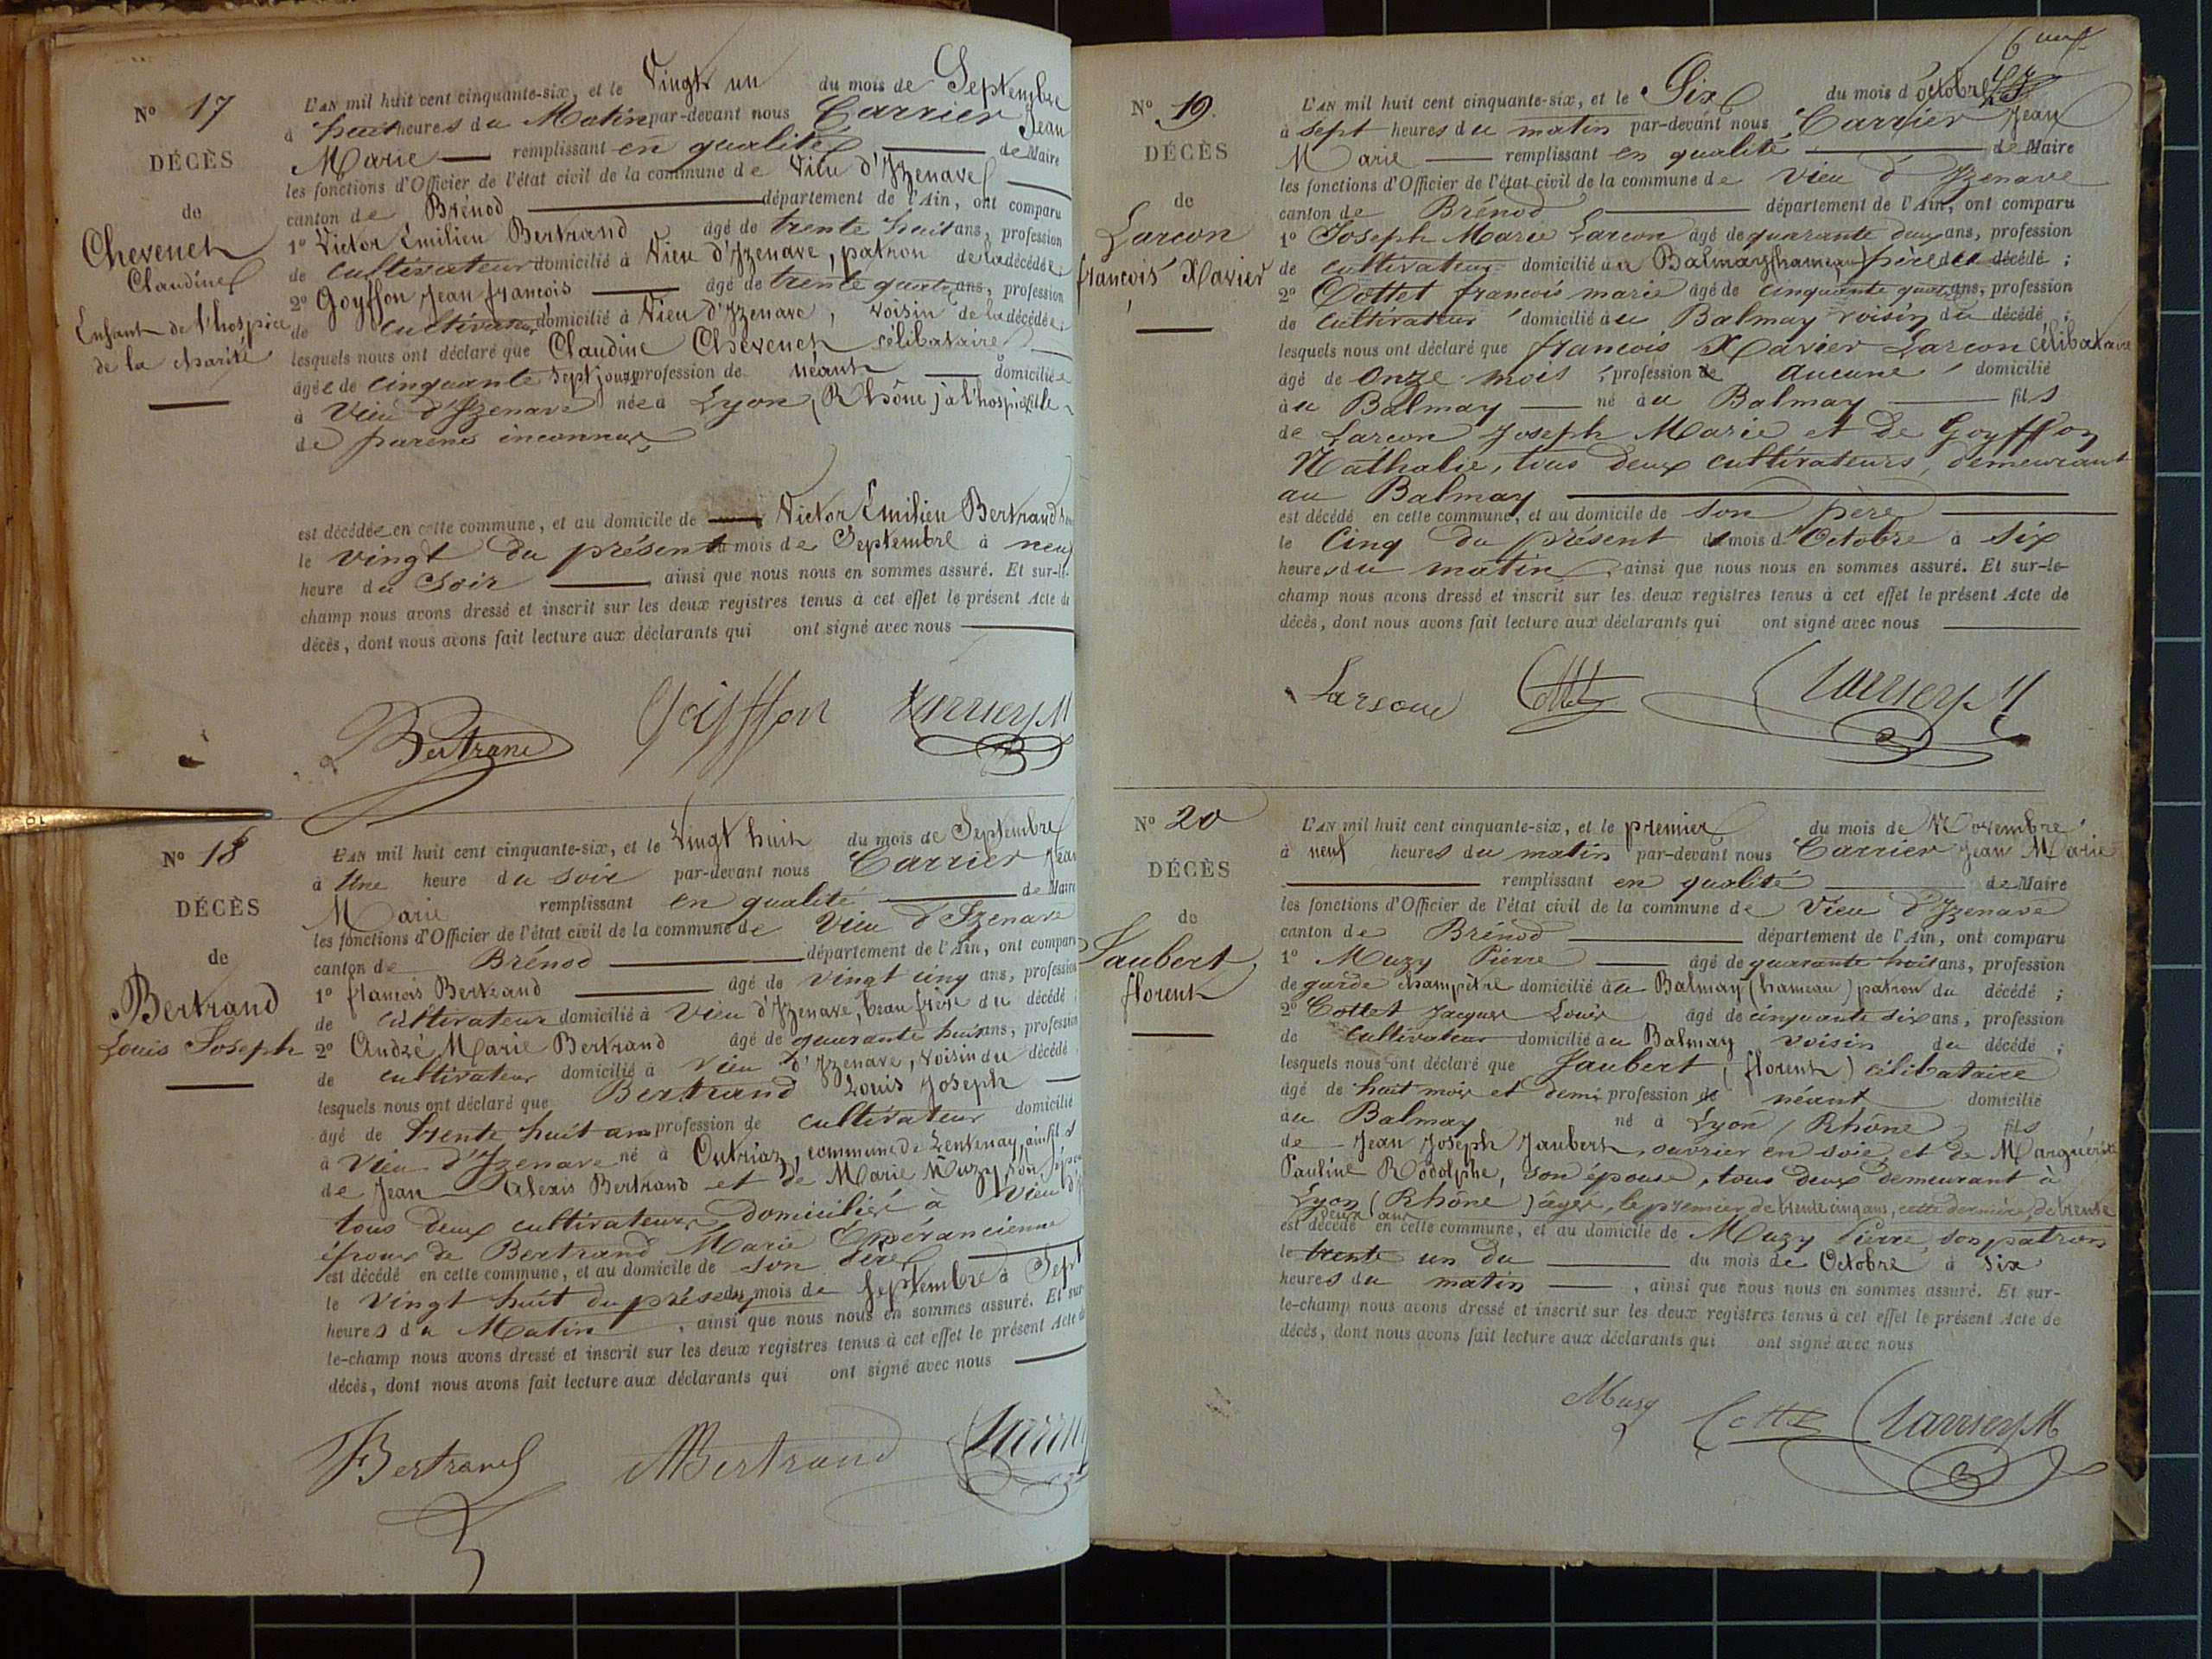 N° 17
DÉCÈS
de
Chevenet
Claudine
Enfant de l'hospice
de la charité
L'AN mil huit cent cinquante-six, et le Vingt un du mois de Septembre
à huit heures du Matin par-devant nous Carrier Jean
Marie remplissant en qualité de Maire
les fonctions d'Officier de l'état civil de la commune de Vieu d'Izenave
canton de Brénod département de l'Ain, ont comparu
1° Victor Émilien Bertrand âgé de trente huit ans, profession
de cultivateur domicilié à Vieu d'Izenave, patron de la décédée
2° Goyffon Jean françois âgé de trente quatre ans, profession
de cultivateur domicilié à Vieu d'Izenave, voisin de la décédée
lesquels nous ont déclaré que Claudine Chevenet célibataire
âgée de cinquante sept jours profession de néant domiciliée
à Vieu d'Izenave née à Lyon (Rhône) à l'hospice fille
de parens inconnus
est décédée en cette commune, et au domicile de Victor Émilien Bertrand
le vingt du présent du mois de Septembre à neuf
heure du Soir ainsi que nous nous en sommes assuré. Et sur-le-
champ nous avons dressé et inscrit sur les deux registres tenus à cet effet le présent Acte de
décès, dont nous avons fait lecture aux déclarants qui ont signé avec nous
Bertrand Goiffon Carrier J M
N° 18
DÉCÈS
de
Bertrand
Louis Joseph
L'AN mil huit cent cinquante-six, et le Vingt huit du mois de Septembre
à Une heure du soir par-devant nous Carrier Jean
Marie remplissant en qualité de Maire
les fonctions d'Officier de l'état civil de la commune de Vieu d'Izenave
canton de Brénod département de l'Ain, ont comparu
1° françois Bertrand âgé de vingt cinq ans, profession
de cultivateur domicilié à Vieu d'Izenave, beau frère du décédé
2° André Marie Bertrand âgé de quarante huit ans, profession
de cultivateur domicilié à Vieu d'Izenave, voisin du décédé
lesquels nous ont déclaré que Bertrand Louis Joseph
âgé de trente huit ans profession de cultivateur domicilié
à Vieu d'Izenave né à Outriaz, commune de Lentenay, ain fils
de Jean Alexis Bertrand et de Marie Muzy, son épouse
tous deux cultivateurs domiciliés à Vieu d'I
époux de Bertrand Marie Espérancienne
est décédé en cette commune, et au domicile de son père
le vingt huit du présent du mois de Septembre à Sept
heures du Matin, ainsi que nous nous en sommes assuré. Et sur-
le-champ nous avons dressé et inscrit sur les deux registres tenus à cet effet le présent Acte de
décès, dont nous avons fait lecture aux déclarants qui ont signé avec nous
Bertrand AMBertrand Carrier
N° 19.
DÉCÈS
de
Larcon
françois Xavier
L'AN mil huit cent cinquante-six, et le Six du mois d'octobre
à sept heures du matin par-devant nous Carrier Jean
Marie remplissant en qualité de Maire
les fonctions d'Officier de l'état civil de la commune de Vieu d'Izenave
canton de Brénod département de l'Ain, ont comparu
1° Joseph Marie Larcon âgé de quarante deux ans, profession
de cultivateur domicilié à a Balmay (hameau) père du décédé ;
2° Cottet françois marie âgé de cinquante quatre ans, profession
de cultivateur domicilié au Balmay voisin du décédé ;
lesquels nous ont déclaré que françois Xavier Larcon célibataire
âgé de Onze mois, profession de aucune domicilié
au Balmay né au Balmay fils
de Larcon Joseph Marie et de Goyffon
Nathalie, tous deux cultivateurs, demeurant
au Balmay
est décédé en cette commune, et au domicile de son père
le Cinq du présent du mois d'Octobre à six
heures du matin, ainsi que nous nous en sommes assuré. Et sur-le-
champ nous avons dressé et inscrit sur les deux registres tenus à cet effet le présent Acte de
décès, dont nous avons fait lecture aux déclarants qui ont signé avec nous
Larcon Cottet Carrier J M
N° 20
DÉCÈS
de
Jaubert
florent
L'AN mil huit cent cinquante-six, et le premier du mois de Novembre
à neuf heures du matin par-devant nous Carrier Jean Marie
remplissant en qualité de Maire
les fonctions d'Officier de l'état civil de la commune de Vieu d'Izenave
canton de Brénod département de l'Ain, ont comparu
1° Muzy Pierre âgé de quarante huit ans, profession
de garde champêtre domicilié au Balmay (hameau) patron du décédé ;
2° Cottet Jacques Louis âgé de cinquante six ans, profession
de Cultivateur domicilié au Balmay voisin du décédé ;
lesquels nous ont déclaré que Jaubert, (florent) célibataire
âgé de huit mois et demi profession de néant domicilié
au Balmay né à Lyon, Rhône, fils
de Jean Joseph Jaubert, ouvrier en soie, et de Marguérite
Pauline Rodolphe, son épouse, tous deux demeurant à
Lyon (Rhône) âgés, le premier de trente cinq ans, cette dernière, de trente
deux ans
est décédé en cette commune, et au domicile de Muzy Pierre, son patron
le trente un du du mois de Octobre à six
heures du matin, ainsi que nous nous en sommes assuré. Et sur-
le-champ nous avons dressé et inscrit sur les deux registres tenus à cet effet le présent Acte de
décès, dont nous avons fait lecture aux déclarants qui ont signé avec nous
Muzy Cottet Carrier J M